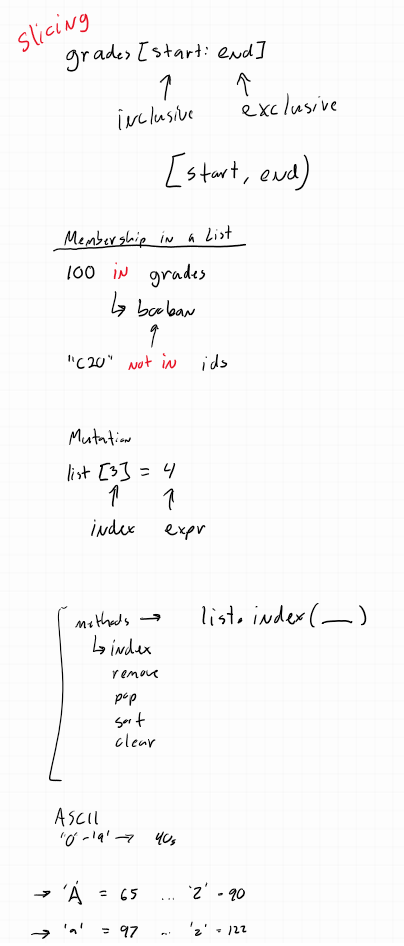 slicing
grades [start: end]
inclusive exclusive
[start, end)
Membership in a List
100 in grades
↳ boolean
"C20" not in ids
Mutation
list [3] = 4
index expr
methods → list.index(__)
↳ index
remove
pop
sort
clear
ASCII
'0' - '9' → 40s
→ 'A' = 65 ... 'Z' - 90
→ 'a' = 97 ... 'z' = 122